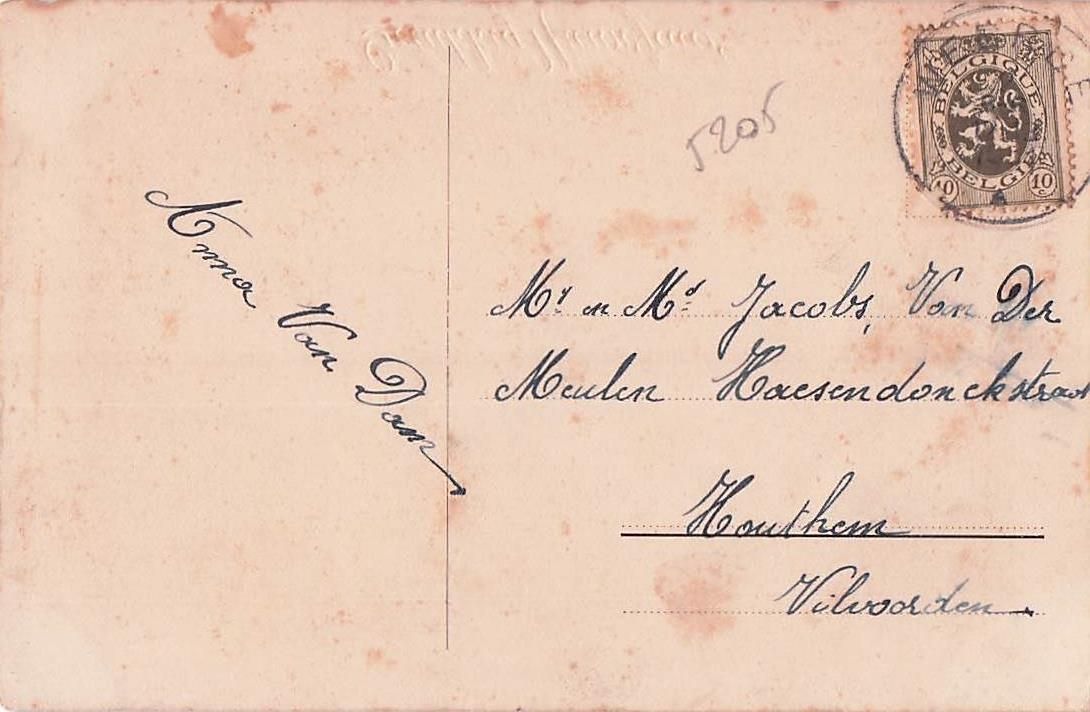 5205
BELGIQUE
BELGIE
10 c
10 c
Anna Van Dam
Mr en Md Jacobs, Van Der
Meulen Haesendonckstraat
Houthem
Vilvoorden